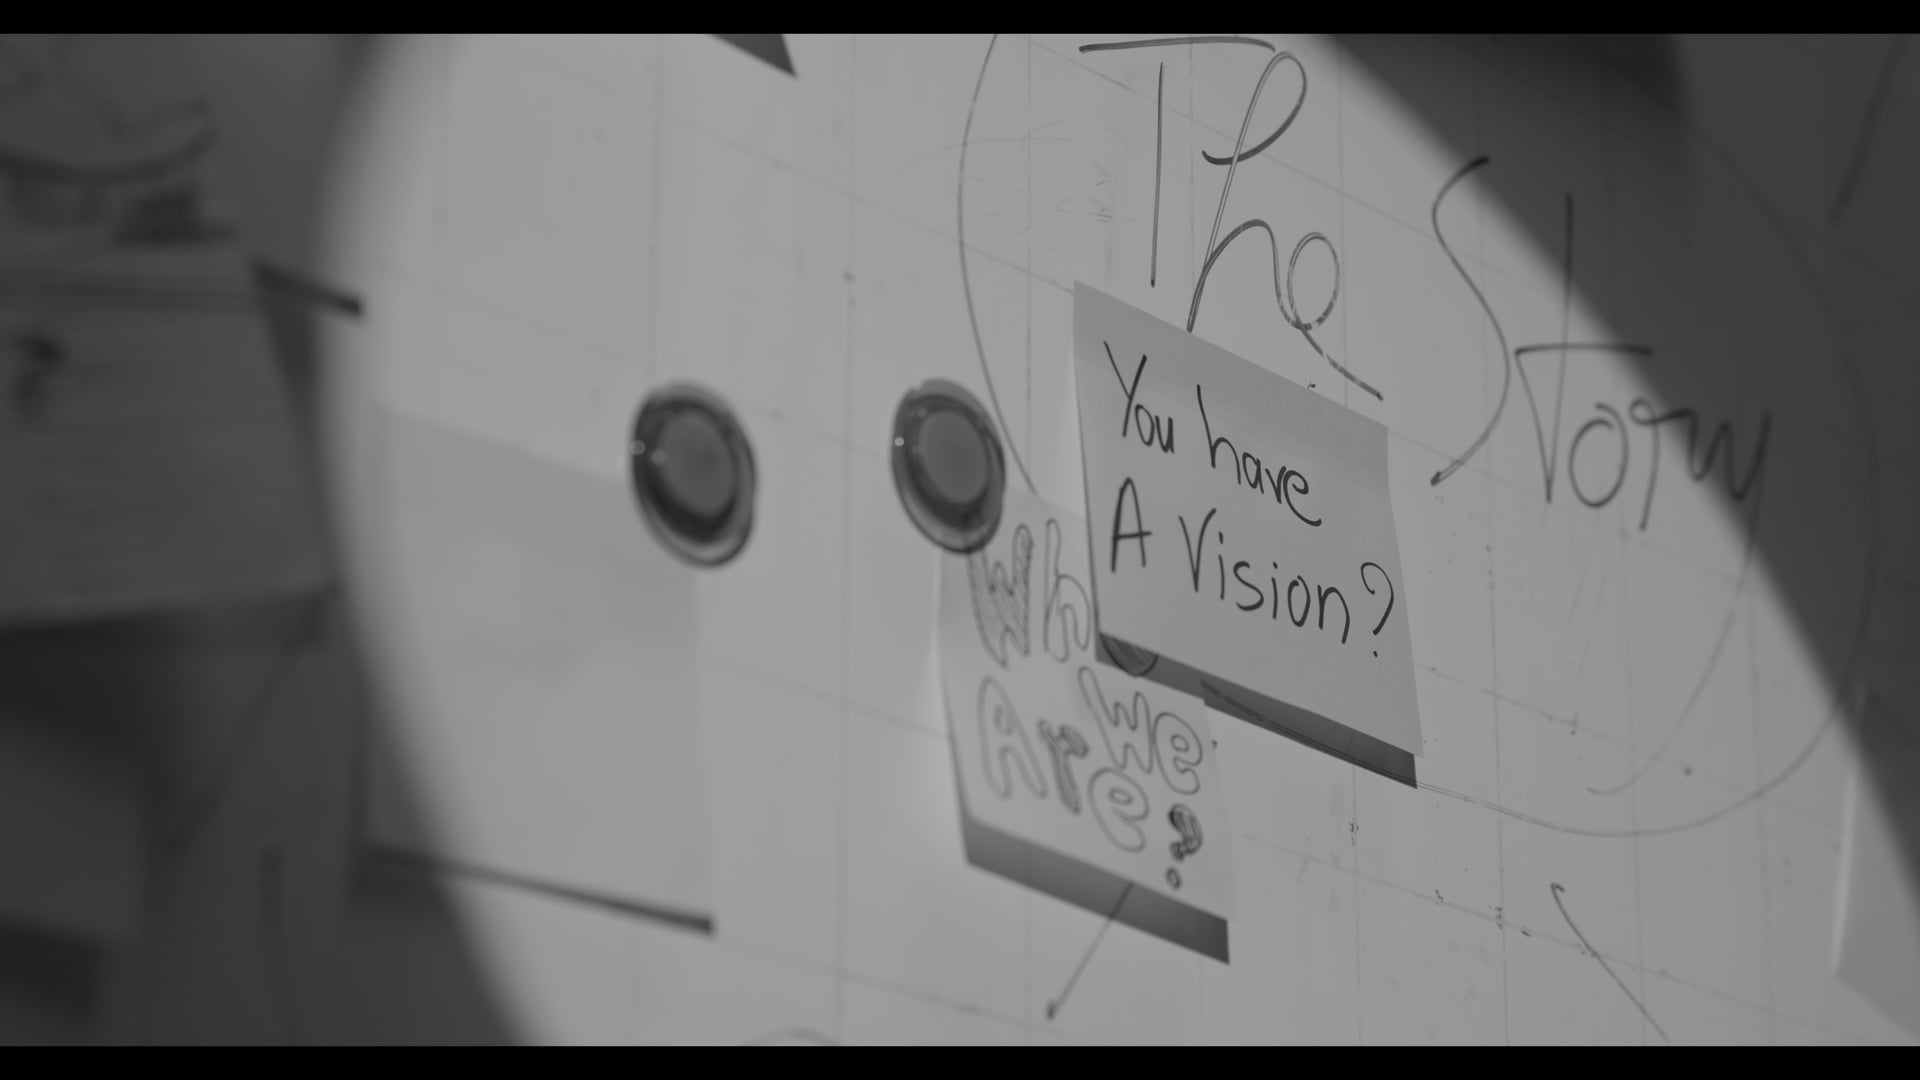 The Story
You have
A Vision?
Wh
we
Are
?